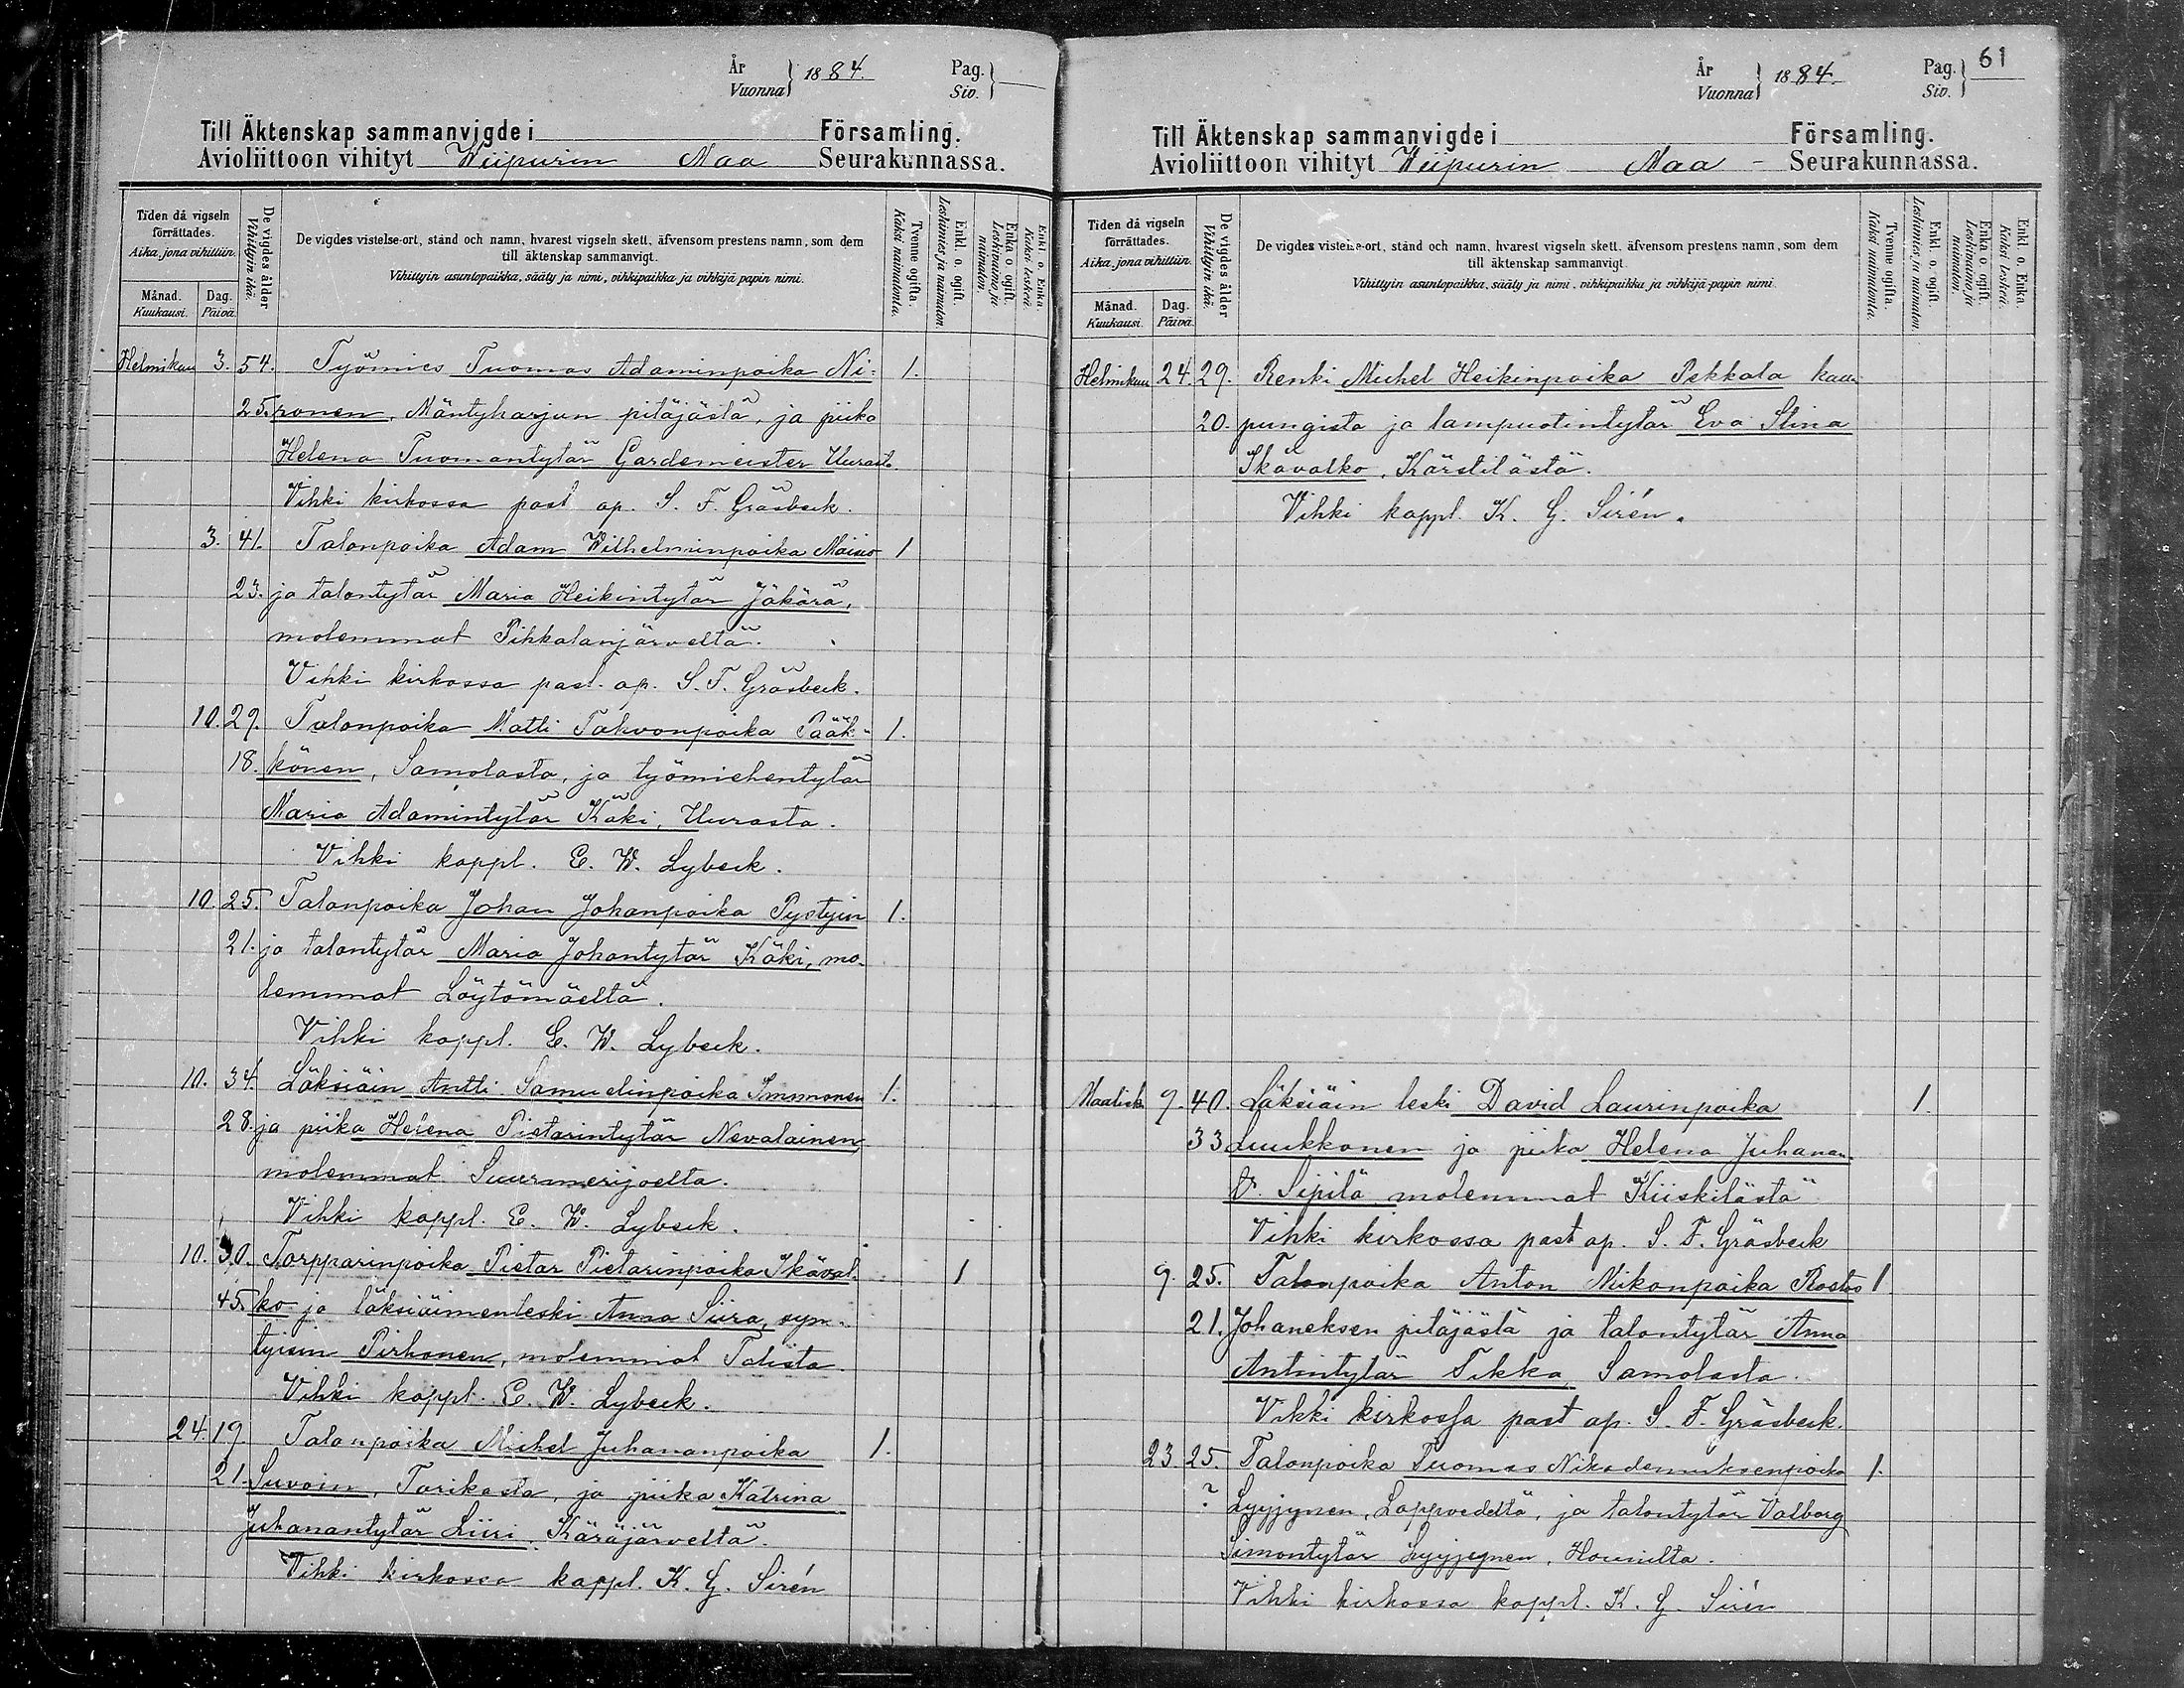 År
Vuonna } 1884.
Pag.
Siv. }
Till Äktenskap sammanvigde i Församling.
Avioliittoon vihityt Wiipurin Maa Seurakunnassa.
Tiden då vigseln förrättades.
Aika, jona vihittiin.
Månad.
Kuukausi.
Dag.
Päivä.
De vigdes ålder
Vihittyin ikä.
De vigdes vistelse-ort, stånd och namn, hvarest vigseln skett, äfvensom prestens namn, som dem
till äktenskap sammanvigt.
Vihittyin asuntopaikka, sääty ja nimi, vihkipaikka ja vihkijä papin nimi.
Tvenne ogifta.
Kaksi naimatonta.
Enkl. o. ogift.
Leskimies ja naimaton.
Enka o. ogift.
Leskivaimo ja naimaton.
Enkl. o. Enka.
Kaksi leskeä.
Helmikuu 3. 54. Työmies Tuomas Adaminpoika Ni- 1.
25. ronen, Mäntyharjun pitäjästä, ja piika
Helena Tuomantytär Gardemeister Uurast.
Vihki kirkossa past ap. S. F. Gräsbeck.
3. 41. Talonpoika Adam Wilhelminpoika Maisio 1
23. ja talontytär Maria Heikintytär Jäkärä,
molemmat Pihkalanjärveltä.
Vihki kirkossa past. ap. S. F. Gräsbeck.
10. 29. Talonpoika Matti Tahvonpoika Pääk- 1.
18. könen, Samolasta, ja työmiehentytär
Maria Adamintytär Käki, Uurasta.
Vihki kappl. E. W. Lybeck.
10. 25. Talonpoika Johan Johanpoika Pystyin 1.
21. ja talontytär Maria Johantytär Käki, mo-
lemmat Löytömäeltä.
Vihki kappl. E. W. Lybeck.
10. 34. Läksiäin Antti Samuelinpoika Immonen 1.
28. ja piika Helena Pietarintytär Nevalainen,
molemmat Suurmerijoelta.
Vihki kappl. E. W. Lybeck.
10. 30. Torpparinpoika Pietar Pietarinpoika Ikäval- 1
45. ko ja läksiäimenleski Anna Siira, syn-
tyisin Pirhonen, molemmat Talista.
Vihki kappl. E. W. Lybeck.
24. 19. Talonpoika Michel Juhananpoika 1.
21. Suvoin, Tarikasta, ja piika Katrina
Juhanantytär Liiri, Käräjärveltä.
Vihki kirkossa kappl. K. G. Sirén
År
Vuonna } 1884.
Pag.
Siv. } 61
Till Äktenskap sammanvigde i Församling.
Avioliittoon vihityt Wiipurin Maa - Seurakunnassa.
Tiden då vigseln förrättades.
Aika, jona vihittiin.
Månad.
Kuukausi.
Dag.
Päivä.
De vigdes ålder
Vihittyin ikä.
De vigdes vistelse-ort, stånd och namn, hvarest vigseln skett, äfvensom prestens namn, som dem
till äktenskap sammanvigt.
Vihittyin asuntopaikka, sääty ja nimi, vihkipaikka ja vihkijä-papin nimi.
Tvenne ogifta.
Kaksi naimatonta.
Enkl. o. ogift.
Leskimies ja naimaton.
Enka o. ogift.
Leskivaimo ja naimaton.
Enkl. o. Enka.
Kaksi leskeä.
Helmikuu 24. 29. Renki Michel Heikinpoika Pekkala kau-
20. pungista ja lampuotintytär Eva Stina
Ikävalko, Kärstilästä.
Vihki kappl. K. G. Sirén.
Maalisk. 9. 40. Läksiäin leski David Laurinpoika 1.
33 Luukkonen ja piika Helena Juhanan-
t. Sipilä molemmat Kiiskilästä
Vihki kirkossa past ap. S. F. Gräsbeck
9. 25. Talonpoika Anton Mikonpoika Rostoo 1
21. Johaneksen pitäjästä ja talontytär Anna
Antintytär Tikka, Samolasta.
Vihki kirkossa past ap. S. F. Gräsbeck.
23 25. Talonpoika Tuomas Nikodemuksenpoika 1.
? Lyyjynen, Lappvedeltä, ja talontytär Valborg
Simontytär Lyyjynen, Hounilta.
Vihki kirkossa kappl. K. G. Sirén